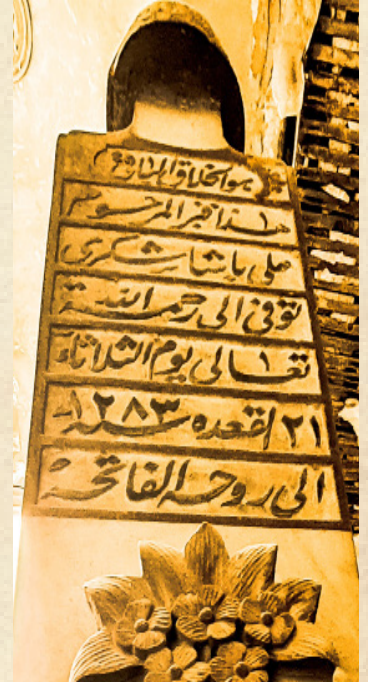 هو الخلاق الباقي
هذا قبر المرحوم
علي باشا شكري
توفي الى رحمة الله
تعالى يوم الثلاثاء
٢١ القعده سنة ١٢٨٣
الى روحه الفاتحة